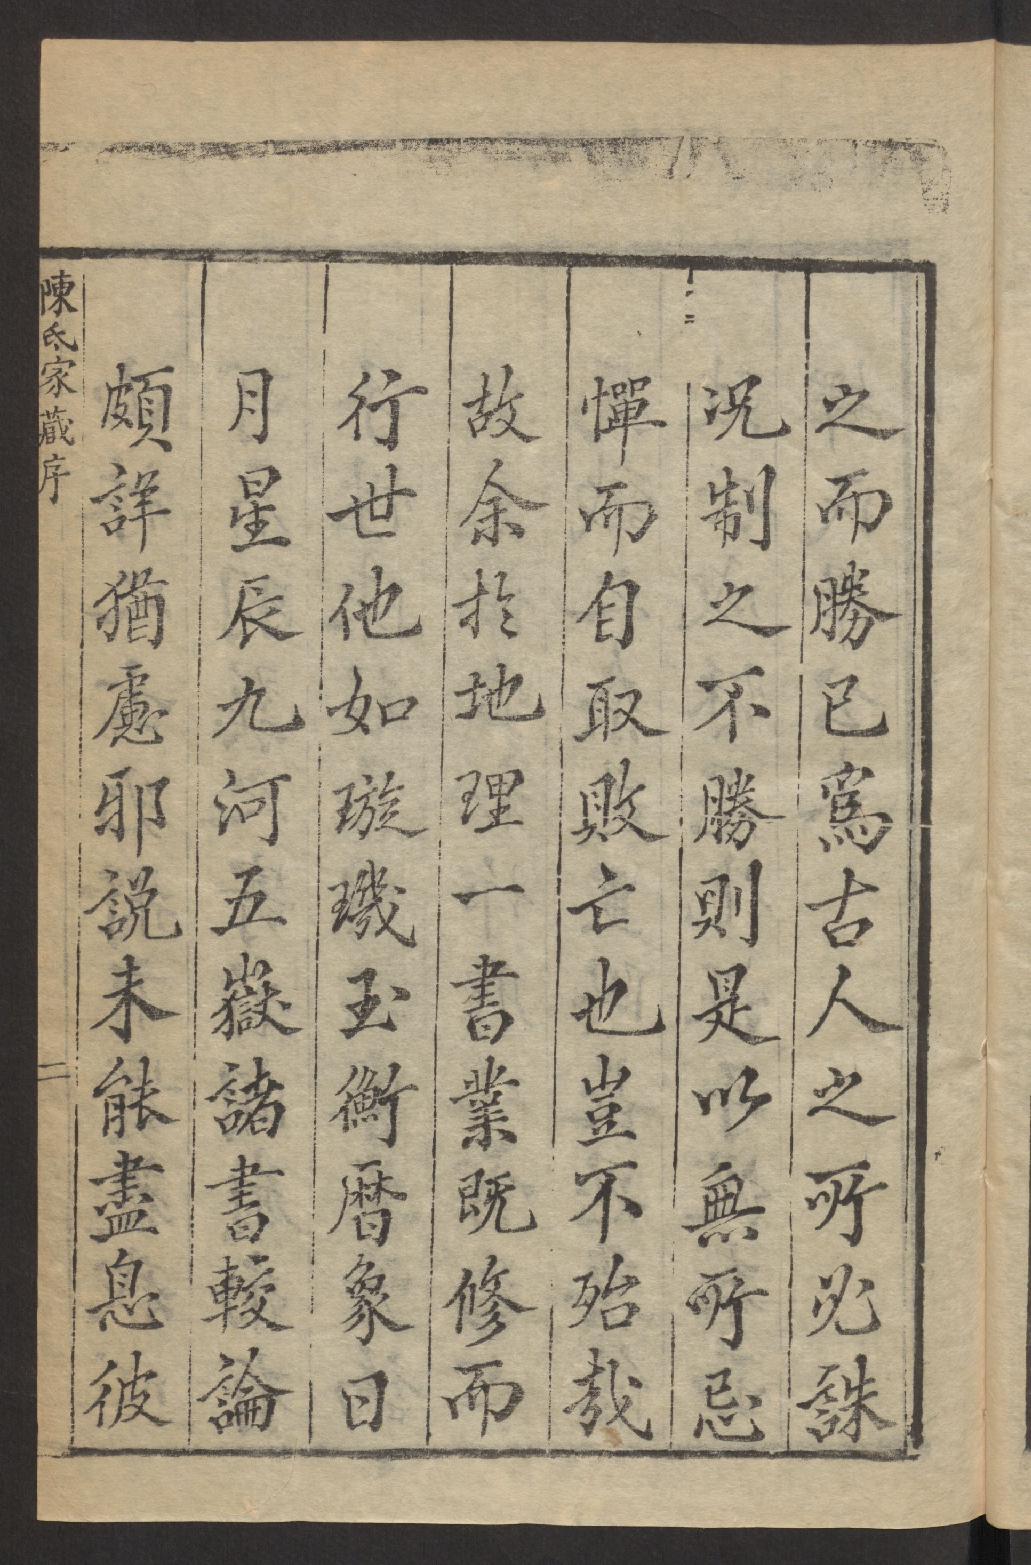 之而勝已爲古人之所必誅
况制之不勝則是以無所忌
憚而自取敗亡也豈不殆哉
故余於地理一書業既修而
行世他如璇璣玉衡曆象日
月星辰九河五嶽諸書較論
頗詳猶慮耶説未能盡息彼
陳氏家藏序
二